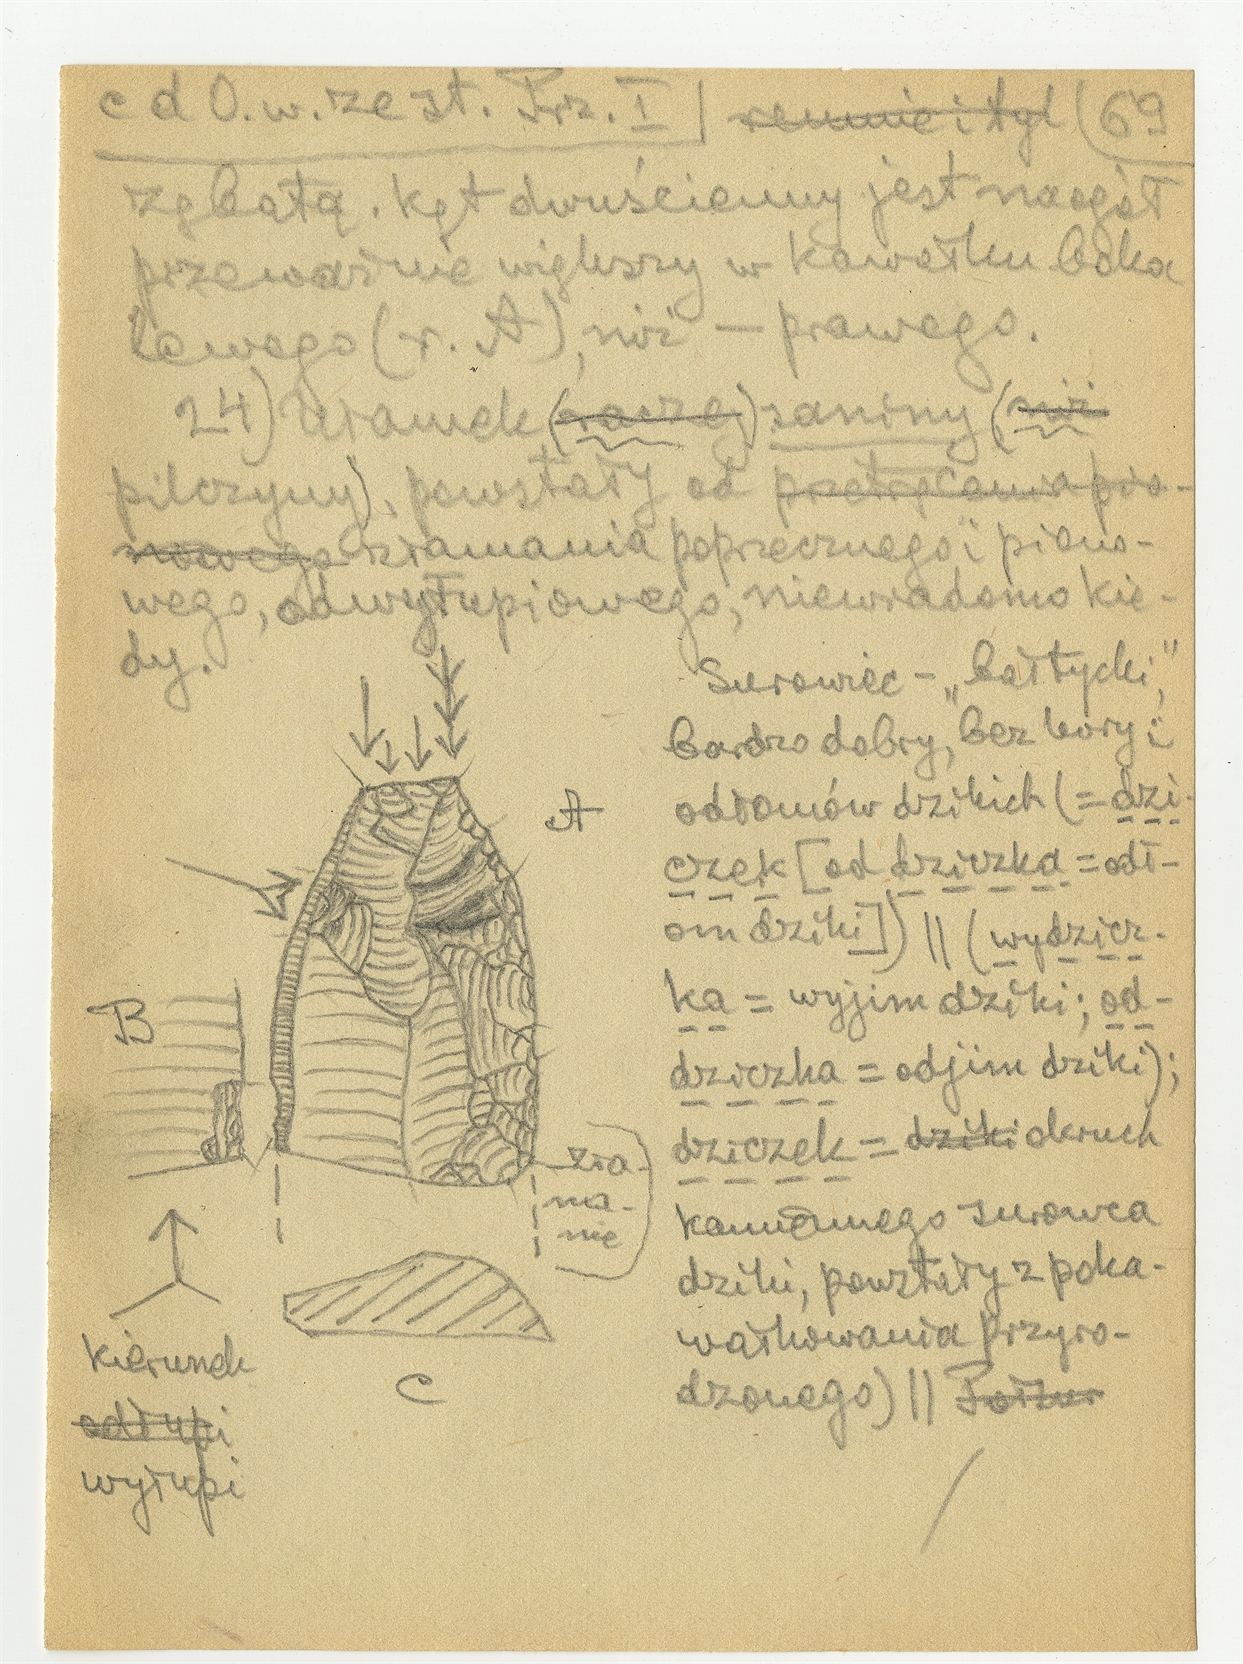 c d O. w. zest. Prz. I | ramię i tył (69
zębatą. Kąt dwuścienny jest naogół
przeważnie większy w kawałku boka
lewego (r. A), niż — prawego.
24) Ułamek (raczej) saniny (niż
pilczyny), powstały od przetrącania pio-
nowego złamania poprzecznego i piono-
wego, odwyłupiowego, niewiadomo kie-
dy.
Surowiec - „bałtycki",
bardzo dobry, bez kory i
odłomów dzikich (= dzi-
czek [od dziczka = odł-
om dziki]) || (wydzicz-
ka = wyjim dziki; od-
dziczka = odjim dziki);
dziczek = dziki okruch
kamiennego surowca
dziki, powstały z poka-
wałkowania przyro-
dzonego) ||
A
B
zła-
ma-
nie
C
kierunek
odłupi
wyłupi